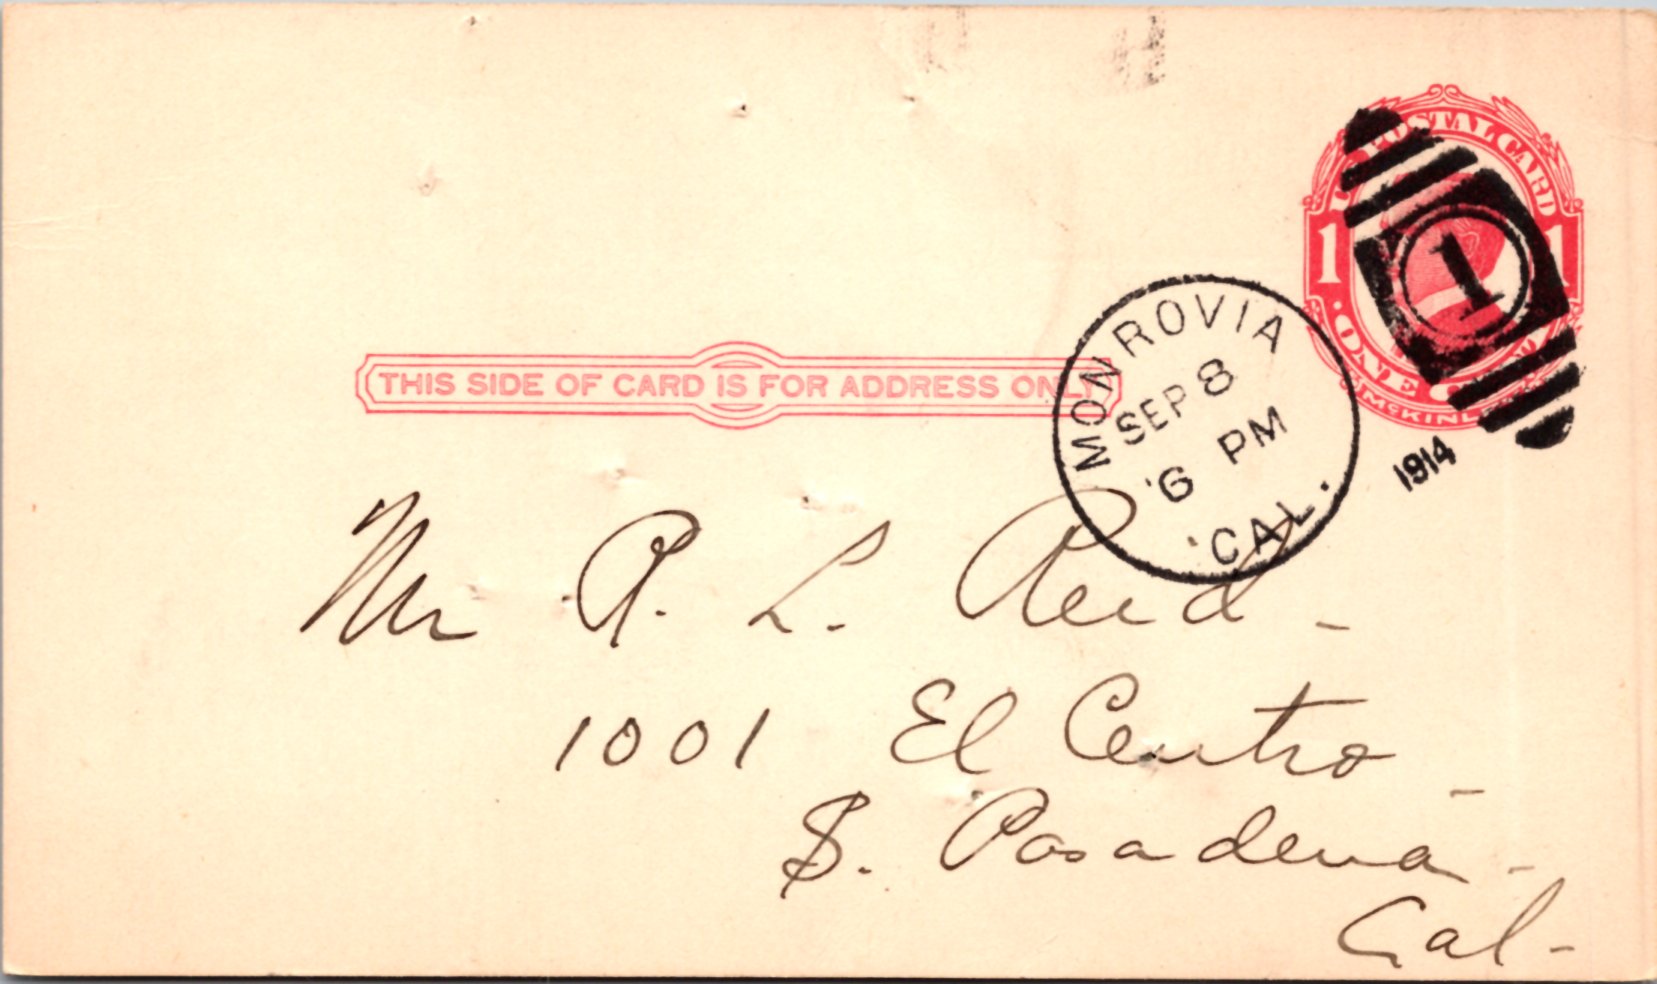 POSTAL CARD
1 1
1
ONE
McKINL
MONROVIA
SEP 8
6 PM
CAL.
1914
THIS SIDE OF CARD IS FOR ADDRESS ONLY
Mr R. L. Reid -
1001 El Centro -
S. Pasadena -
Cal -